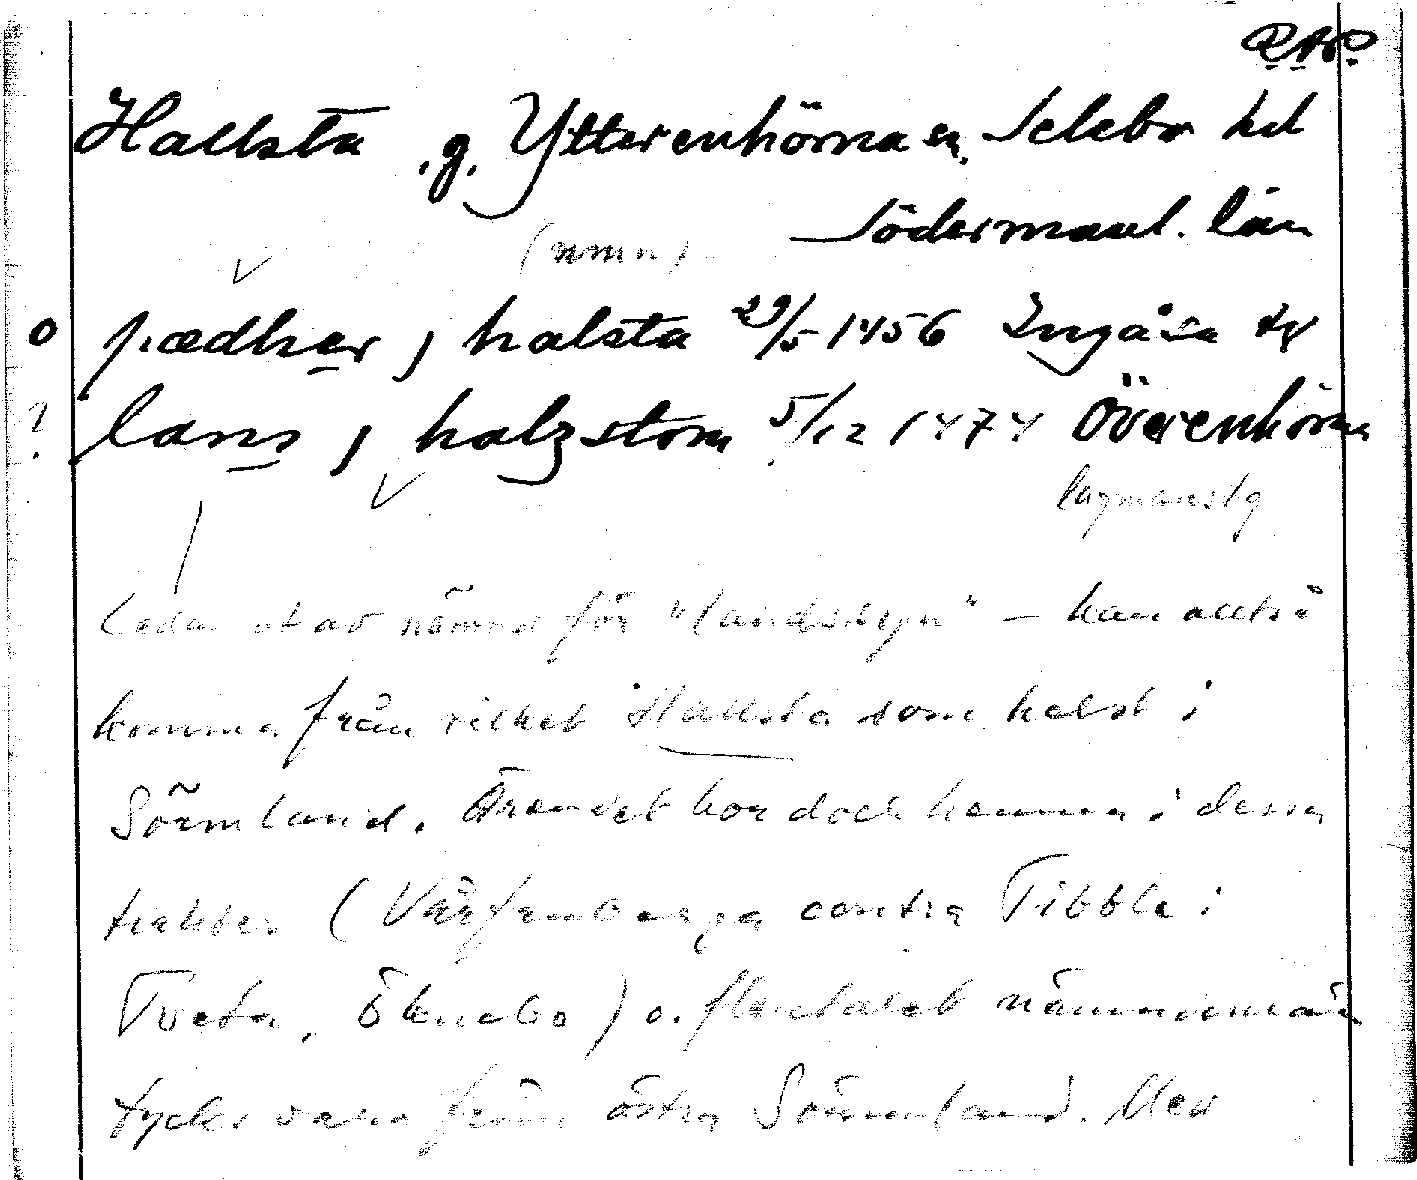 RAP
Hallsta .g. Ytterenhörna sn. Selebo hd
Södermanl. län
(nmn)
o pædher j halsta 29/5 1456 Ingåsa ty
? lans j halzstom 5/12 1474 Överenhörna
lagmanstg
ledan ut av nämnd för "landskyn" – kan alltså
komma från vilket Hallsta som helst i
Sörmland. Ärendet hör dock hemma i dessa
trakter ( contra Tibble i
Tveta, Öknebo) o. flertalet nämndemän
tycks vara från östra Sörmland. Men